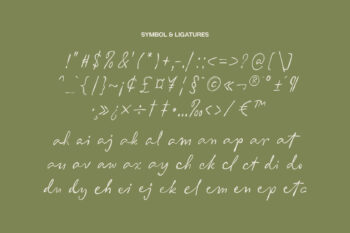 SYMBOL & LIGATURES
!"#$%&'(*)+,-./:;<=>?@[\]
^_`{|}~¡¢£¤¥¦§¨©«¬®¯°±¶
·¸»¿×÷†‡•…‰‹›⁄€™
ah ai aj ak al am an ap ar at
au av aw ax ay ch ck cl ct di do
du dy eh ei ej ek el em en ep etc